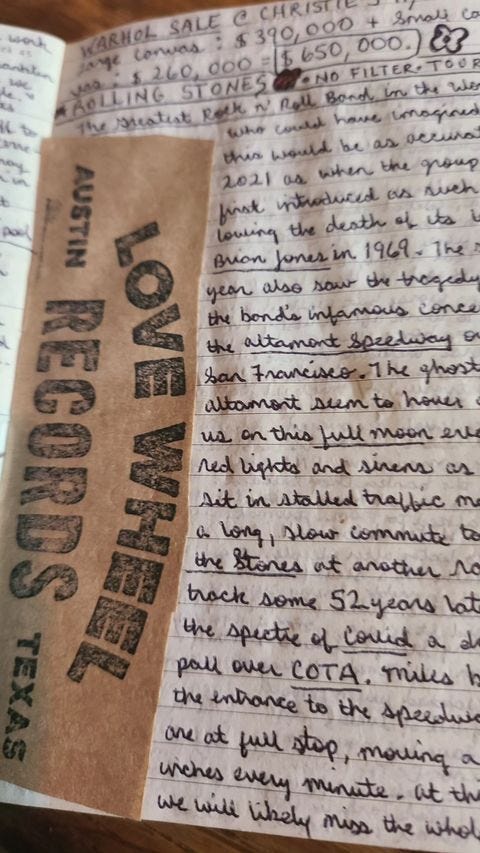 work
WARHOL SALE @ CHRISTIE'S
large canvas: $390,000 + small
$260,000 = $650,000.
ROLLING STONES • NO FILTER • TOUR
The greatest Rock n' Roll Band in the
who could have imagined
this would be as accurate
2021 as when the group
first introduced as such
lowing the death of its
Brian Jones in 1969. The
year also saw the tragedy
the band's infamous
the altamont speedway
San Francisco. The ghost
altamont seem to hover
us on this full moon
red lights and sirens as
sit in stalled traffic
a long, slow commute to
the Stones at another
track some 52 years
the spectre of Covid a
pall over COTA. miles
the entrance to the
are at full stop, moving a
inches every minute. at
we will likely miss the
LOVE WHEEL
RECORDS
AUSTIN
TEXAS